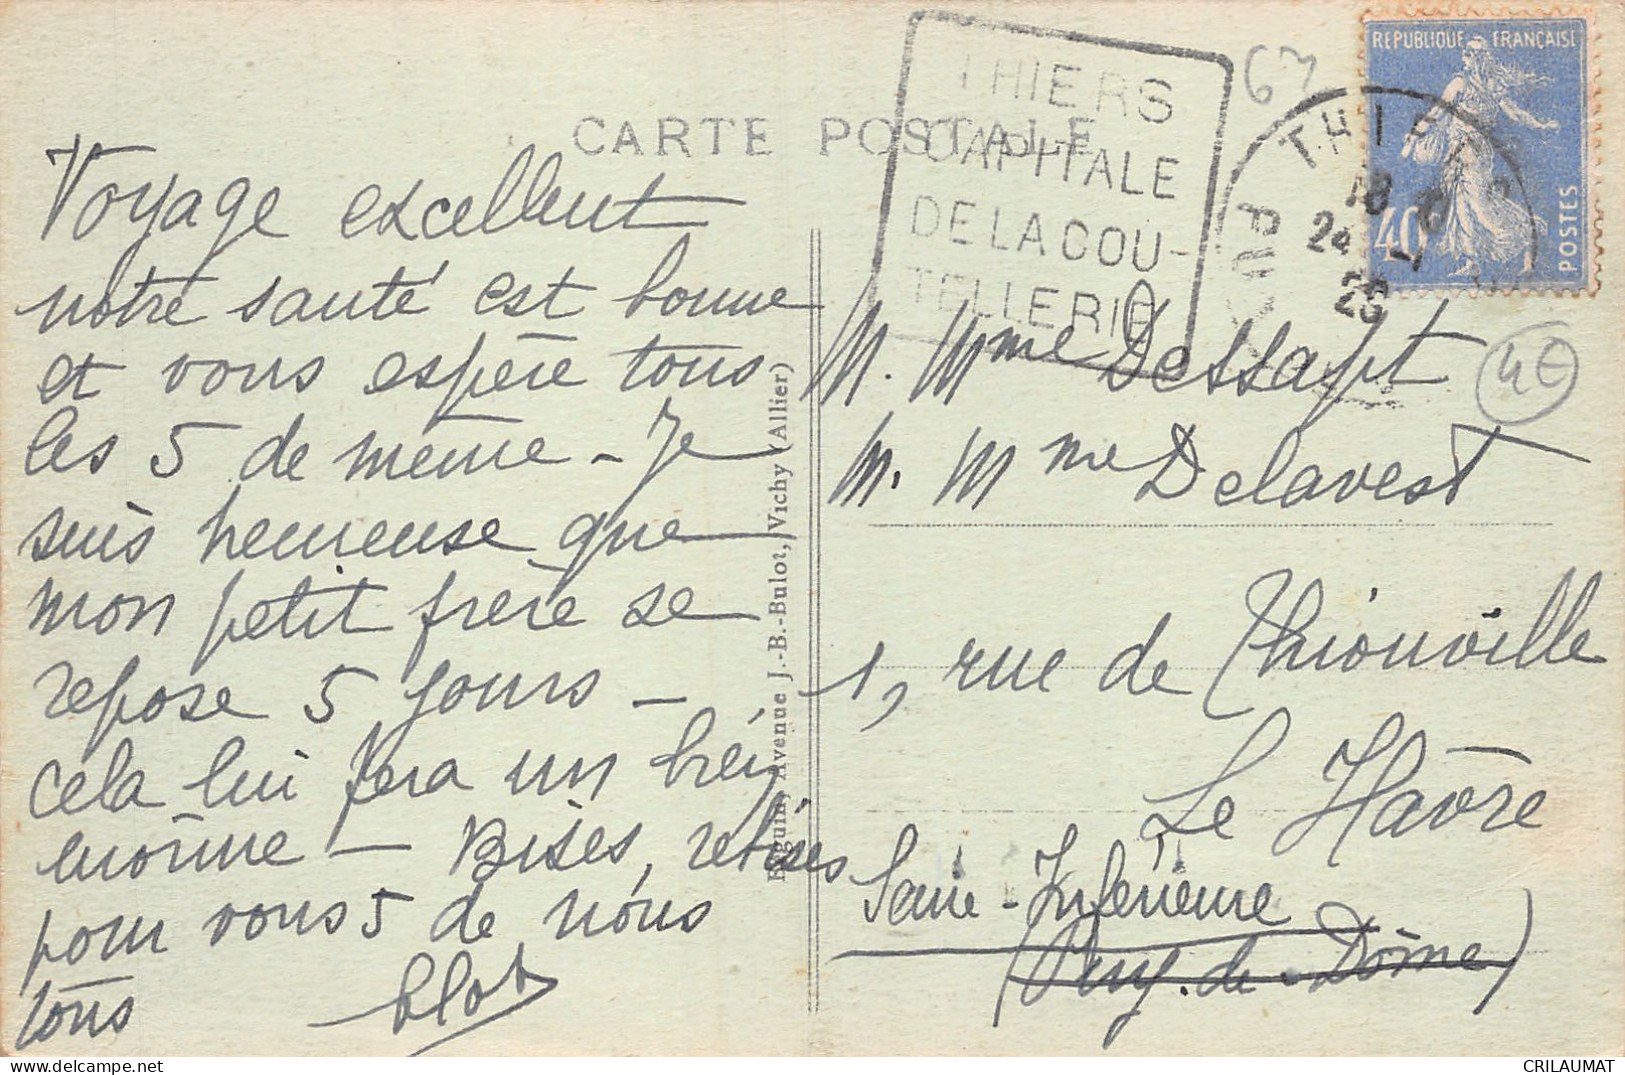 CARTE POSTALE
THIERS
CAPITALE
DE LA COU-
TELLERIE
67
THIERS
18
24 -7
28
PUY
REPUBLIQUE FRANÇAISE
40
POSTES
4€
Voyage excellent
notre santé est bonne
et vous espère tous
les 5 de même - Je
suis heureuse que
mon petit frère se
repose 5 jours -
cela lui fera un bien
énorme - Bises, rebises
pour vous 5 de nous
tous
Béguin, Avenue J.-B.-Bulot, Vichy (Allier)
M. Mme Dessapt
M. Mme Delavest
1, rue de Thionville
Le Havre
Seine-Inférieure
(Puy-de-Dôme)
CRILAUMAT